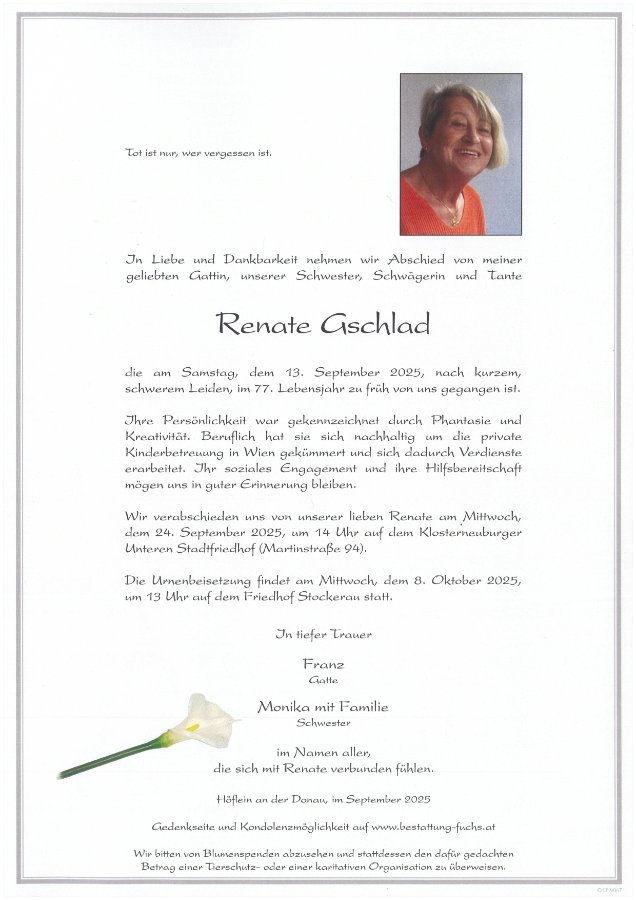 Tot ist nur, wer vergessen ist.
In Liebe und Dankbarkeit nehmen wir Abschied von meiner
geliebten Gattin, unserer Schwester, Schwägerin und Tante
Renate Gschlad
die am Samstag, dem 13. September 2025, nach kurzem,
schwerem Leiden, im 77. Lebensjahr zu früh von uns gegangen ist.
Ihre Persönlichkeit war gekennzeichnet durch Phantasie und
Kreativität. Beruflich hat sie sich nachhaltig um die private
Kinderbetreuung in Wien gekümmert und sich dadurch Verdienste
erarbeitet. Ihr soziales Engagement und ihre Hilfsbereitschaft
mögen uns in guter Erinnerung bleiben.
Wir verabschieden uns von unserer lieben Renate am Mittwoch,
dem 24. September 2025, um 14 Uhr auf dem Klosterneuburger
Unteren Stadtfriedhof (Martinstraße 94).
Die Urnenbeisetzung findet am Mittwoch, dem 8. Oktober 2025,
um 13 Uhr auf dem Friedhof Stockerau statt.
In tiefer Trauer
Franz
Gatte
Monika mit Familie
Schwester
im Namen aller,
die sich mit Renate verbunden fühlen.
Höflein an der Donau, im September 2025
Gedenkseite und Kondolenzmöglichkeit auf www.bestattung-fuchs.at
Wir bitten von Blumenspenden abzusehen und stattdessen den dafür gedachten
Betrag einer Tierschutz- oder einer karitativen Organisation zu überweisen.